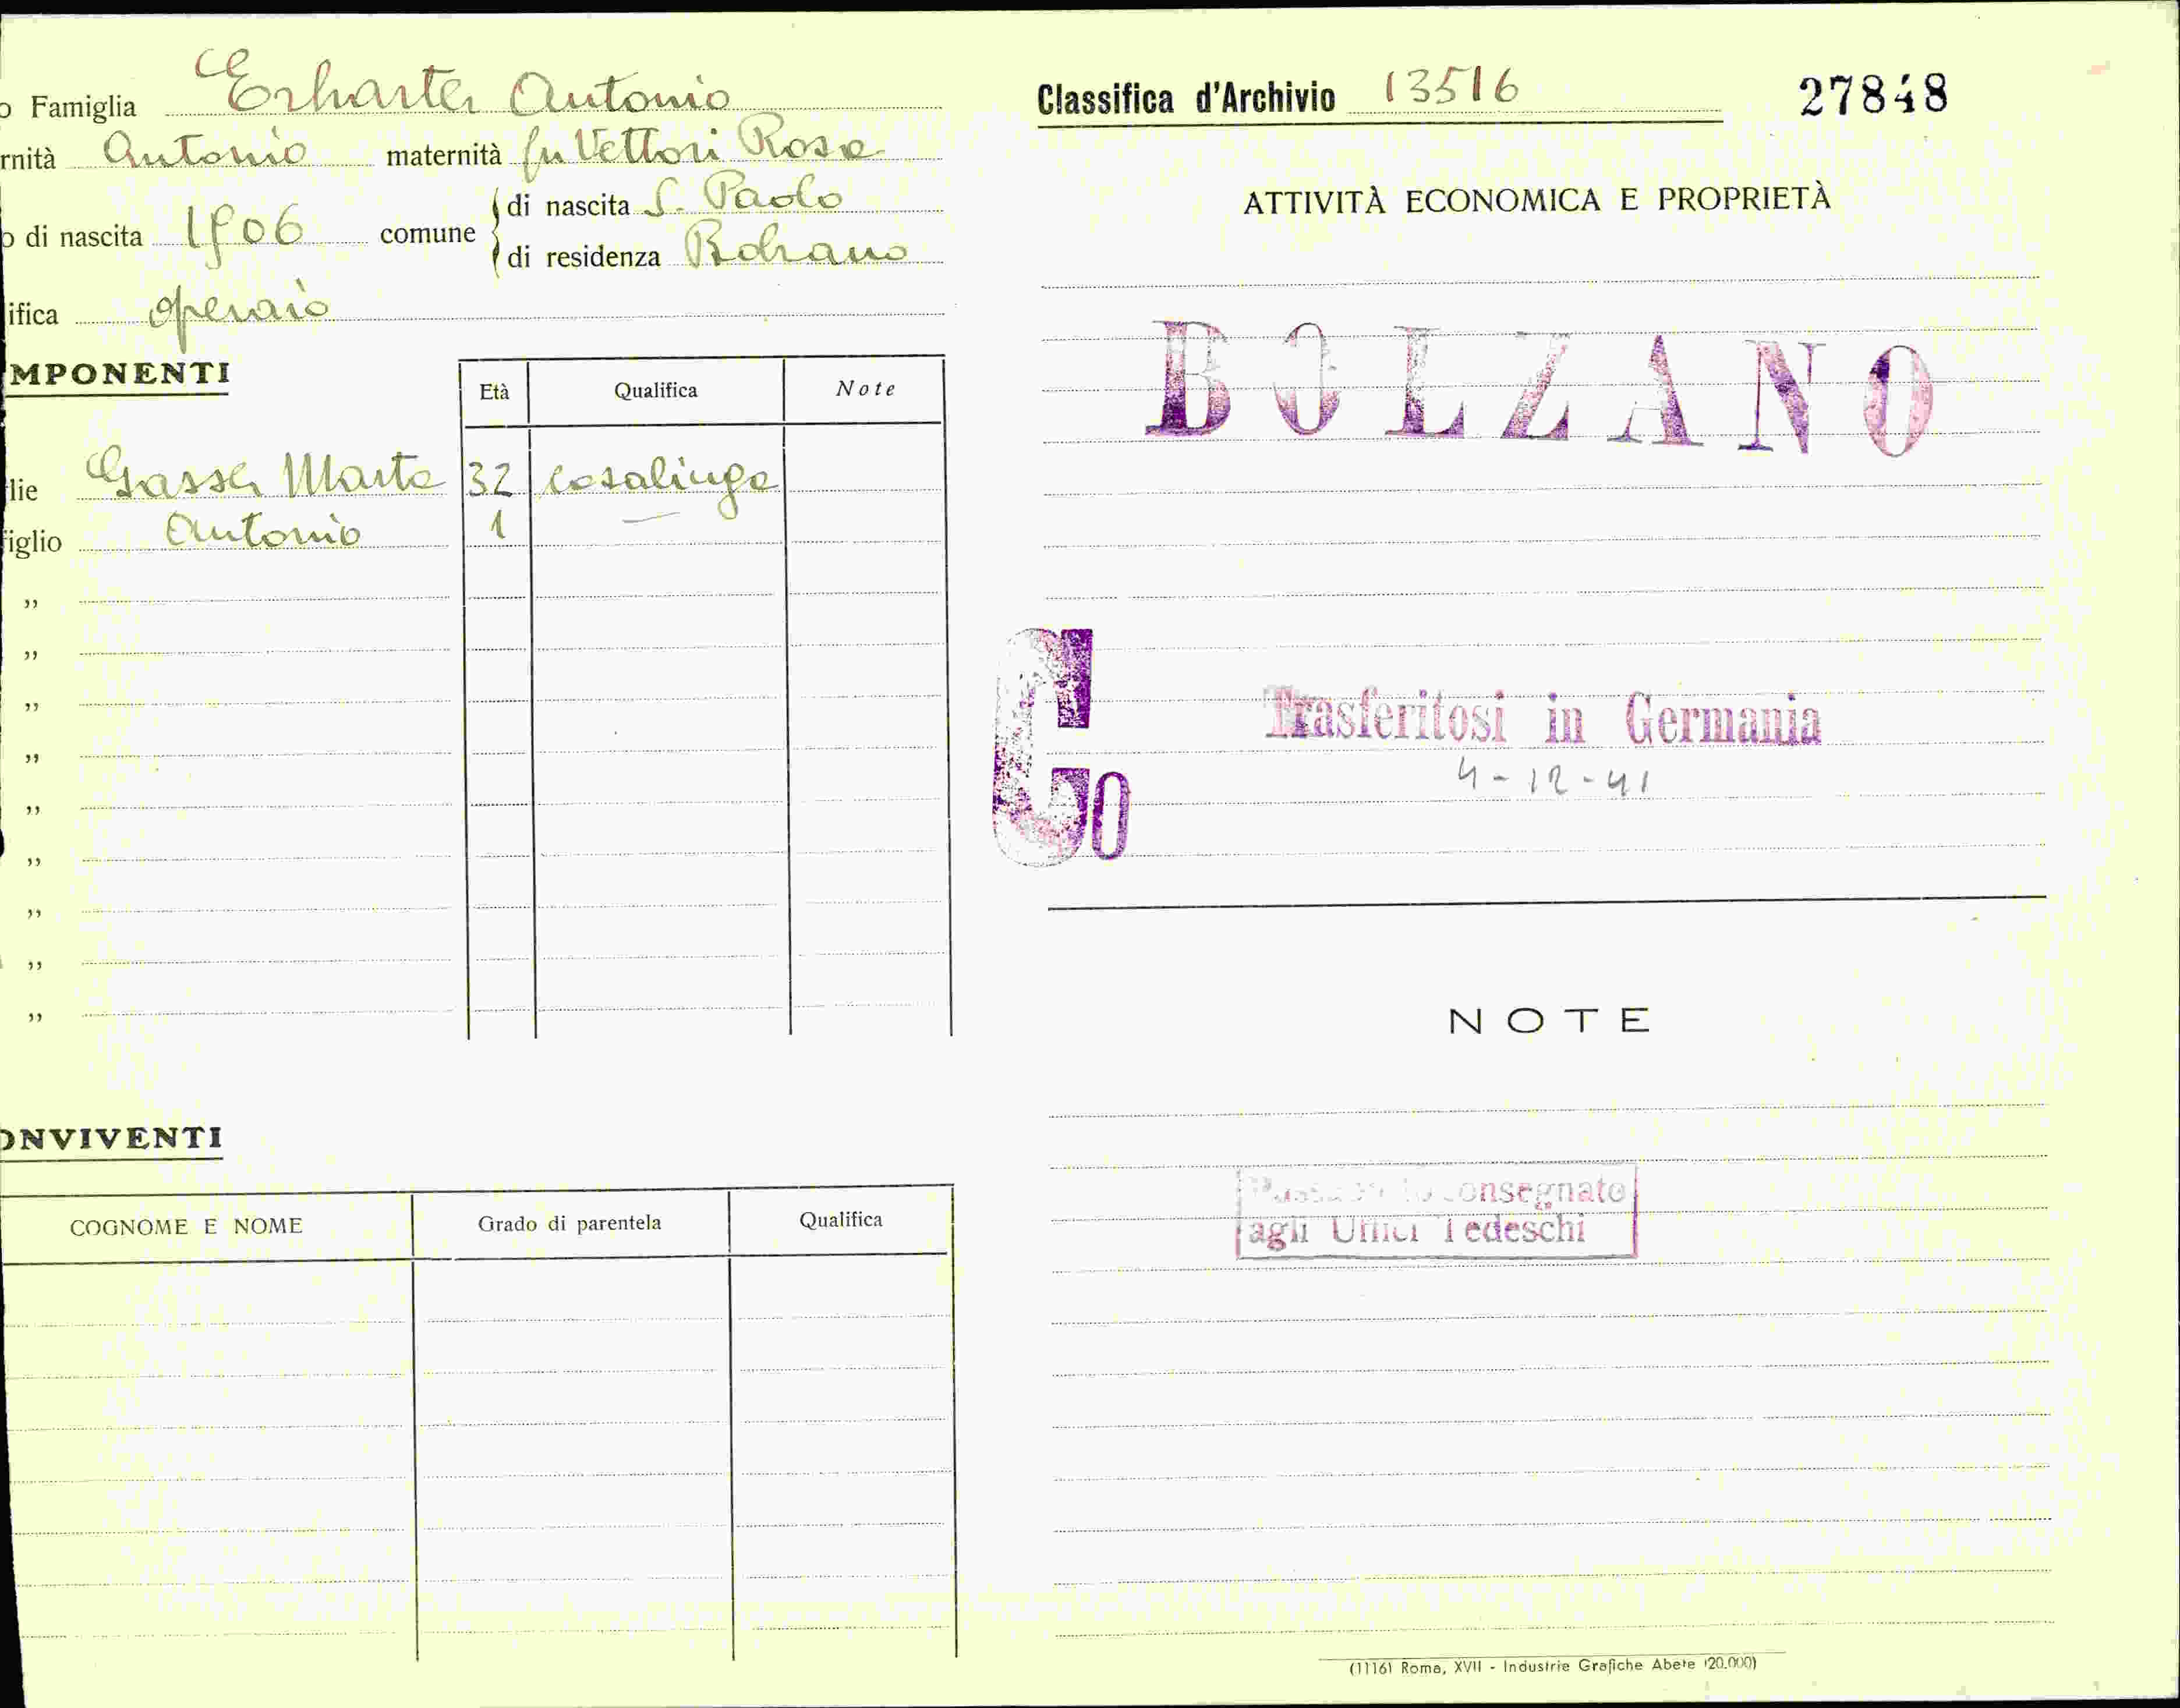 o Famiglia Erharter Antonio
rnità Antonio maternità fu Vettori Rosa
o di nascita 1906 comune di nascita S. Paolo
di residenza Bolzano
ifica operaio
MPONENTI
Età Qualifica Note
lie Gasser Marta 32 casalinga
iglio Antonio 1 —
„
„
„
„
„
„
„
„
„
ONVIVENTI
COGNOME E NOME Grado di parentela Qualifica
Classifica d'Archivio 13516 27848
ATTIVITÀ ECONOMICA E PROPRIETÀ
BOLZANO
Go
Trasferitosi in Germania
4-12-41
NOTE
consegnato
agli Uffici Tedeschi
(1116) Roma, XVII - Industrie Grafiche Abete (20.000)